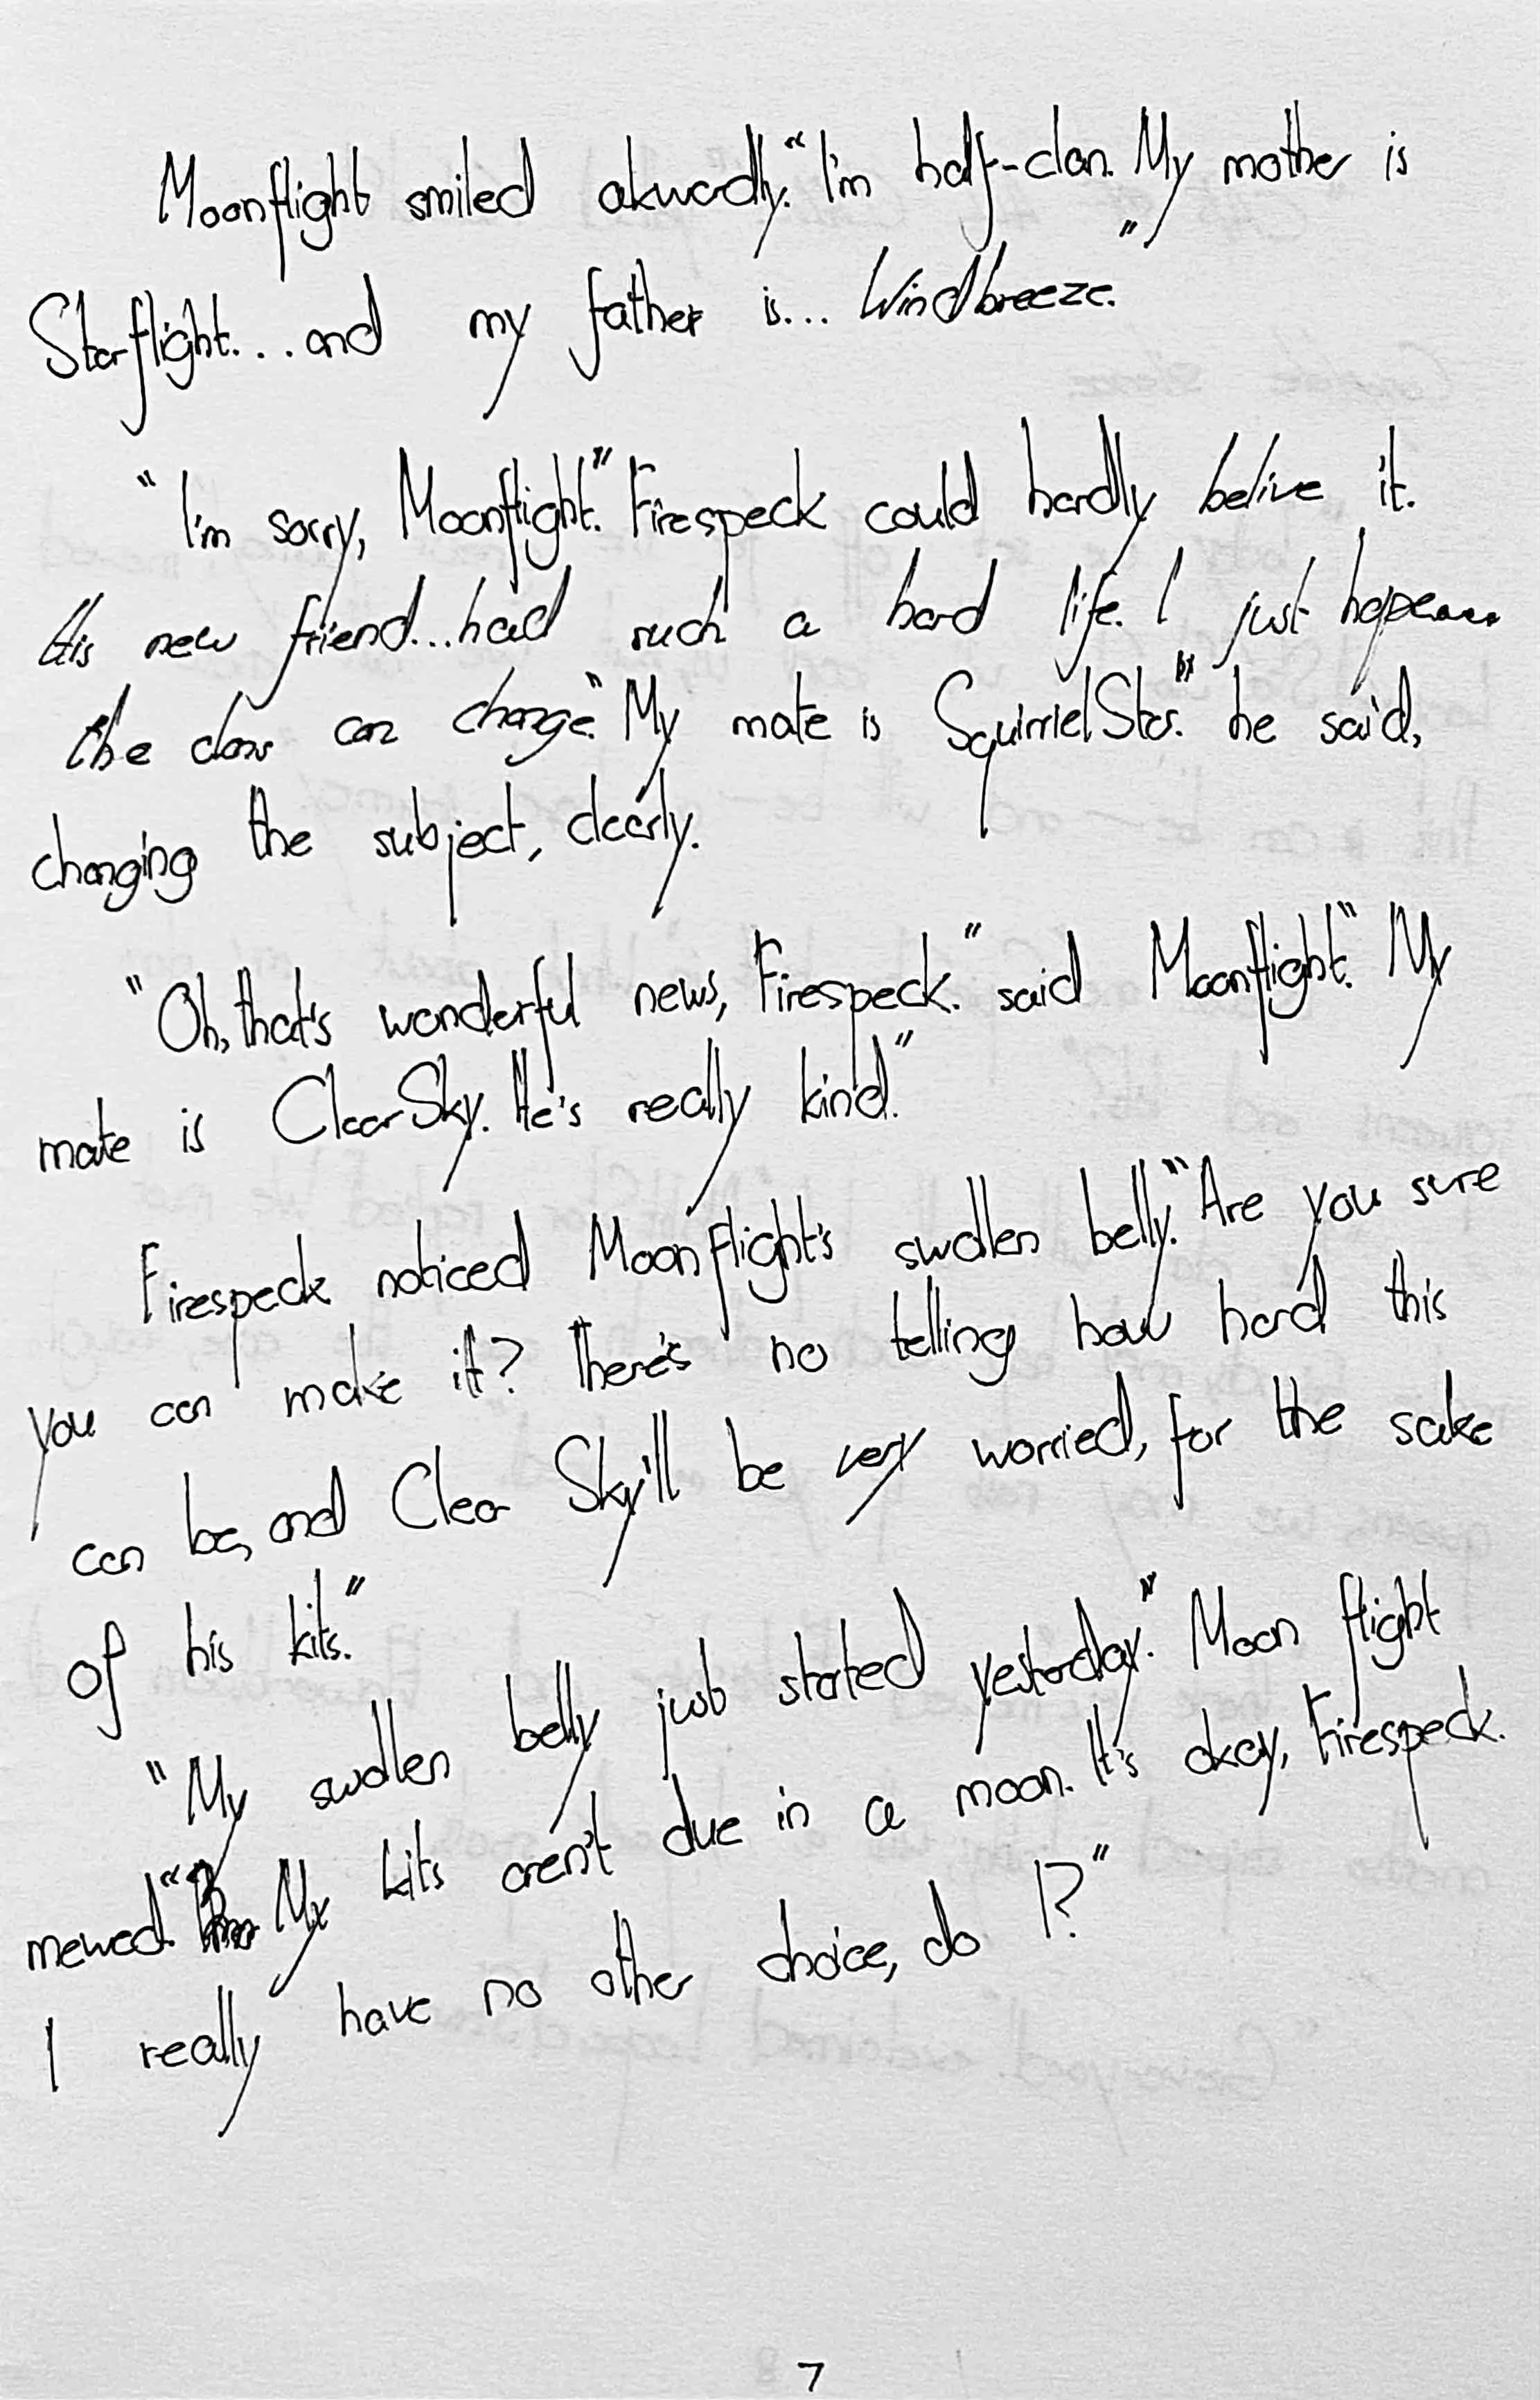 Moonflight smiled akwardly. "I'm half-clan. My mother is
Starflight... and my father is... Windbreeze."
"I'm sorry, Moonflight." Firespeck could hardly belive it.
His new friend... had such a hard life. I just hope
the clans can change. "My mate is SquirrielStar." he said,
changing the subject, clearly.
"Oh, that's wonderful news, Firespeck." said Moonflight. "My
mate is ClearSky. He's really kind."
Firespeck noticed Moonflight's swollen belly. "Are you sure
you can make it? There's no telling how hard this
can be, and Clear Sky'll be very worried, for the sake
of his kits."
"My swollen belly just started yesterday." Moon flight
mewed. "My kits aren't due in a moon. It's okay, Firespeck.
I really have no other choice, do I?"
7